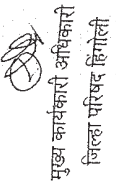 मुख्य कार्यकारी अधिकारी
जिल्हा परिषद हिंगोली